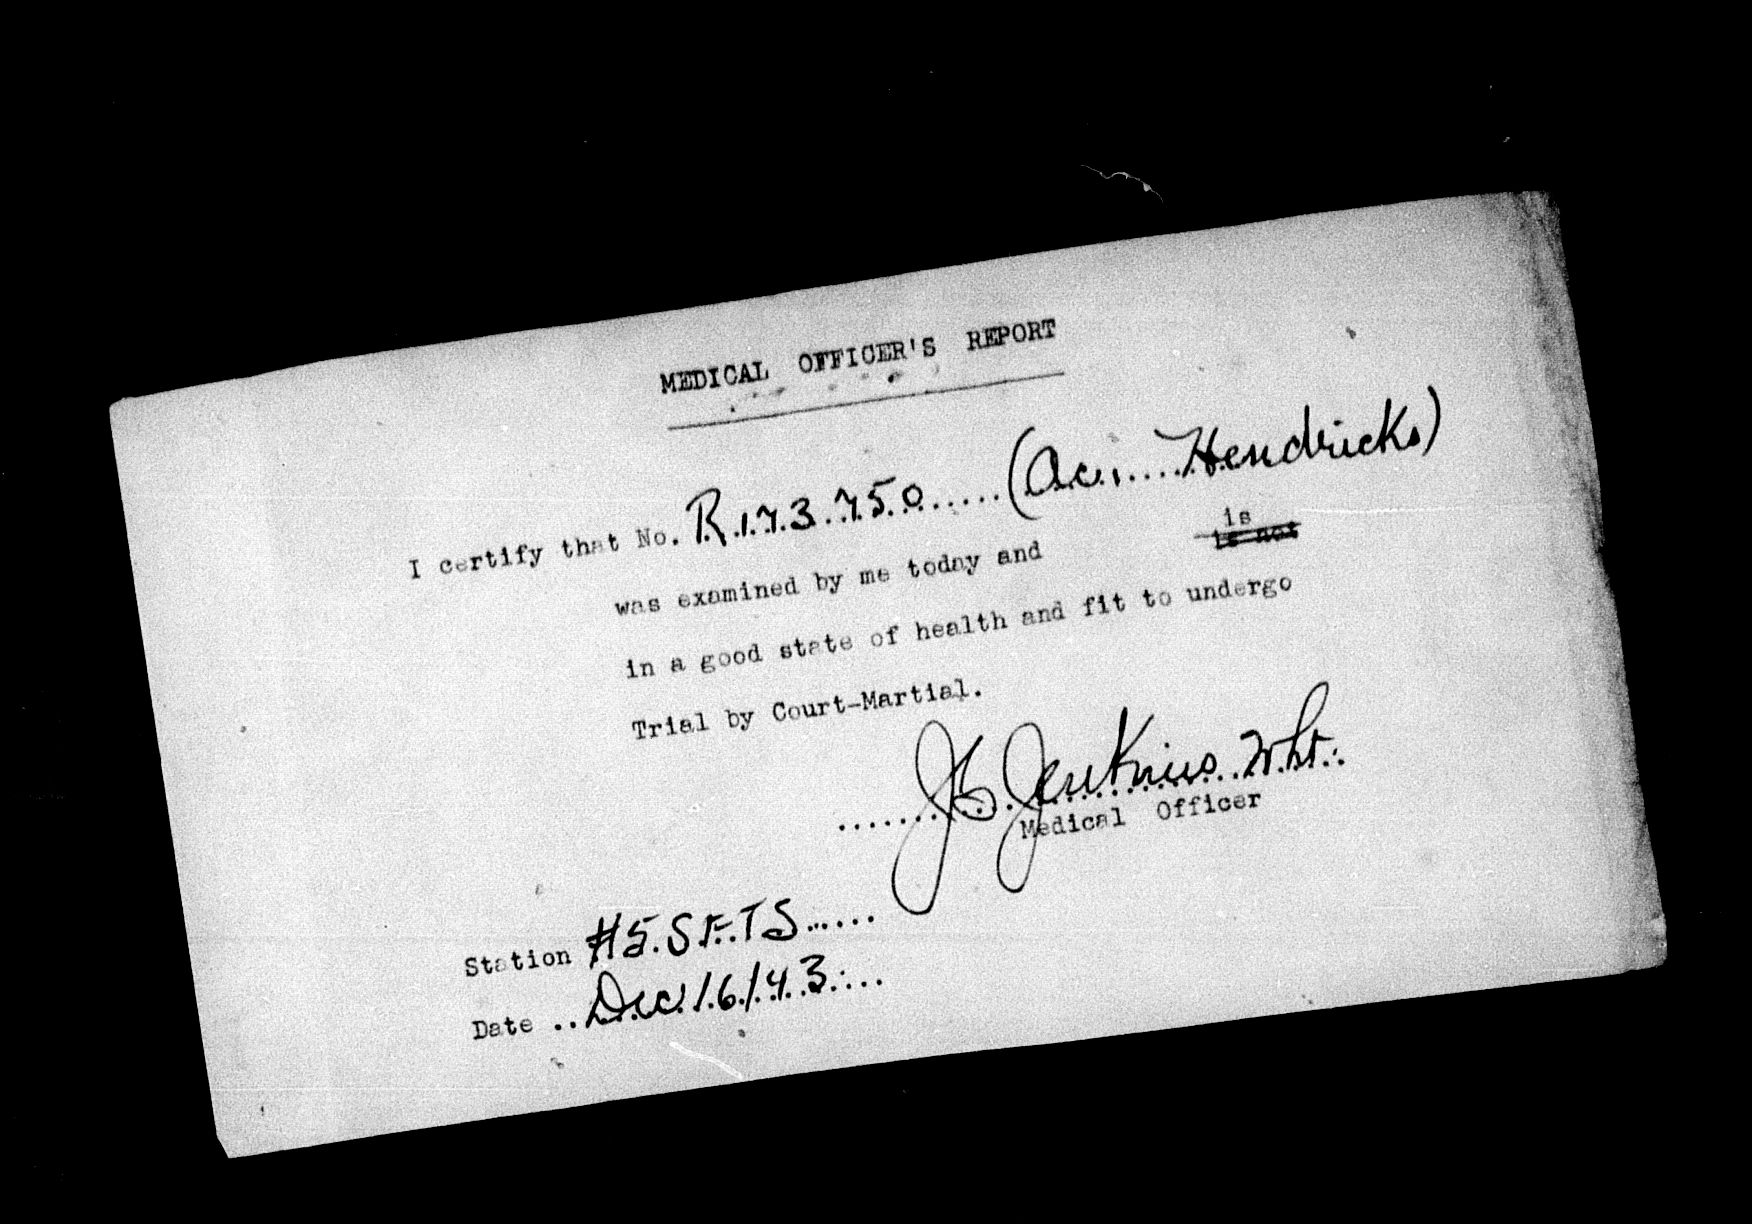 MEDICAL OFFICER'S REPORT
I certify that No. R.173750.....(Ac1....Hendricks)
was examined by me today and is
is not
in a good state of health and fit to undergo
Trial by Court-Martial.
.......JB Jenkins
Medical Officer
Station #5.S.F.T.S.....
Date ..Dec/16/43...